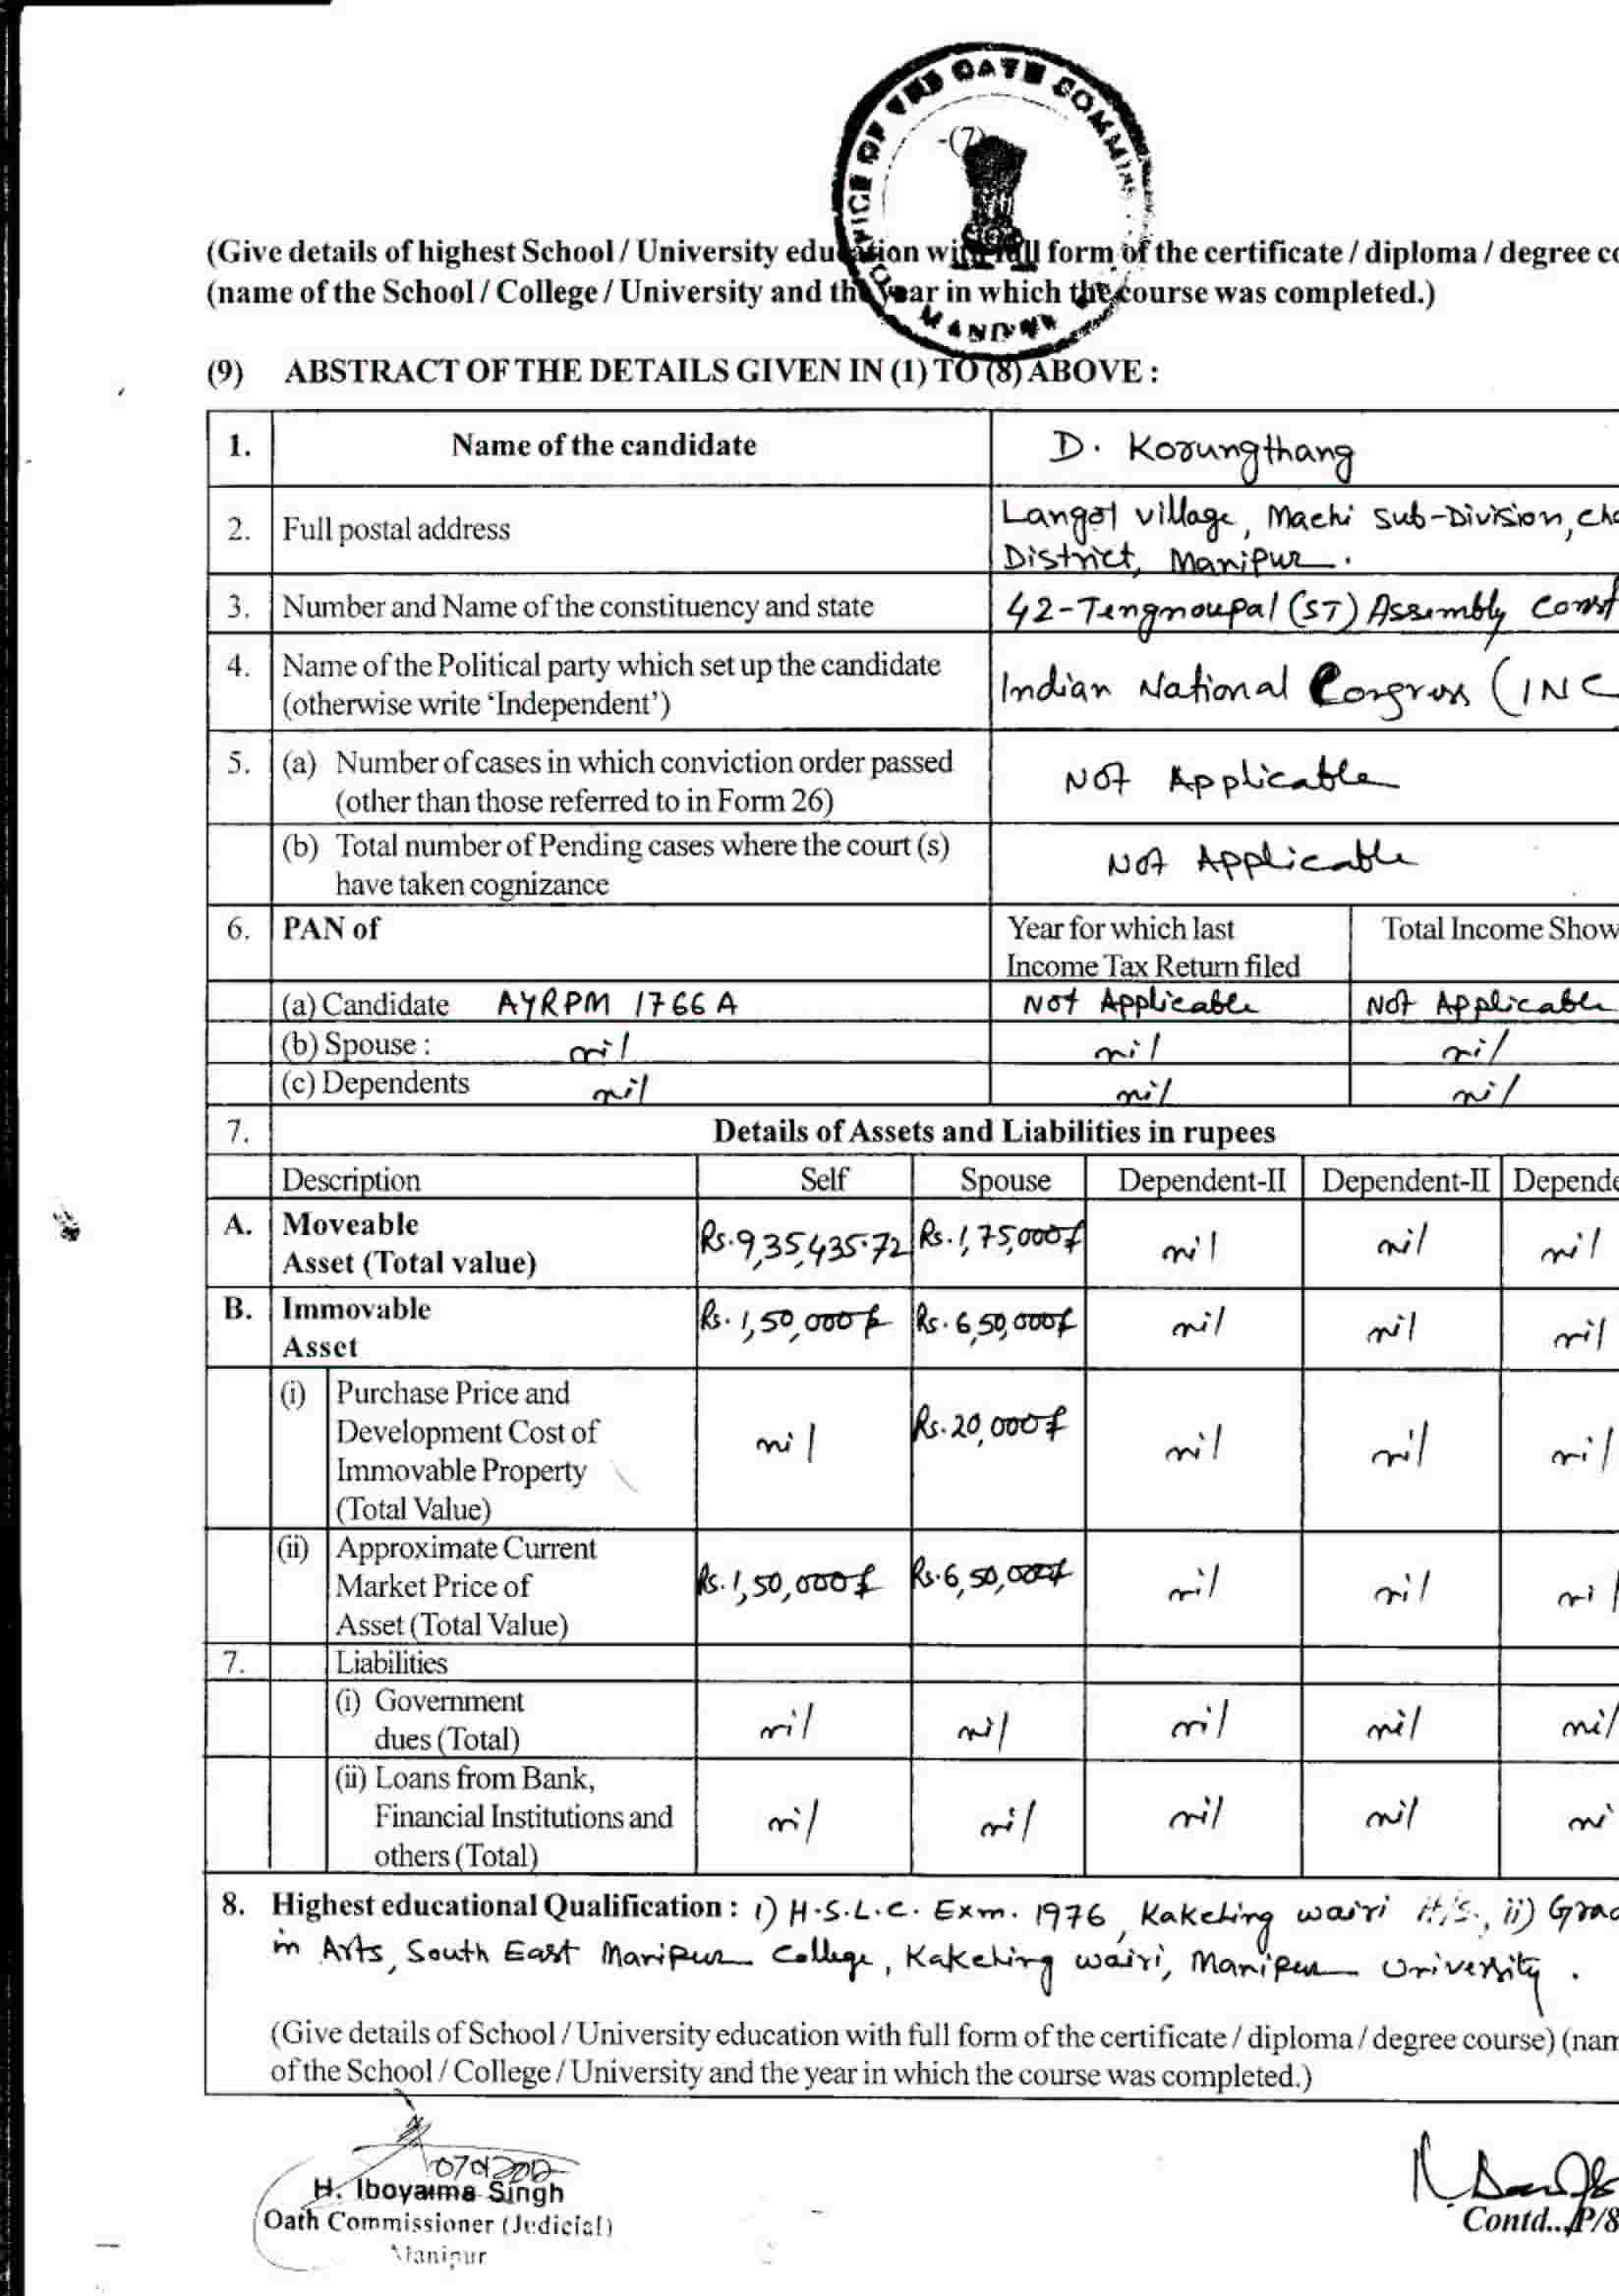 OFFICE OF THE OATH COMMI
-(7)
MANIPUR
(Give details of highest School / University education with full form of the certificate / diploma / degree co
(name of the School / College / University and the year in which the course was completed.)
(9) ABSTRACT OF THE DETAILS GIVEN IN (1) TO (8) ABOVE :
1. Name of the candidate D. Korungthang
2. Full postal address Langol village, Machi sub-Division, Cha
District, Manipur.
3. Number and Name of the constituency and state 42-Tengnoupal (ST) Assembly Const
4. Name of the Political party which set up the candidate
(otherwise write ‘Independent’) Indian National Congress (INC
5. (a) Number of cases in which conviction order passed
(other than those referred to in Form 26) Not Applicable
(b) Total number of Pending cases where the court (s)
have taken cognizance Not Applicable
6. PAN of Year for which last Total Income Show
Income Tax Return filed
(a) Candidate AYRPM 1766 A Not Applicable Not Applicable
(b) Spouse : nil nil nil
(c) Dependents nil nil nil
7. Details of Assets and Liabilities in rupees
Description Self Spouse Dependent-II Dependent-II Depende
A. Moveable
Asset (Total value) Rs.9,35,435.72 Rs.1,75,000/- nil nil nil
B. Immovable
Asset Rs.1,50,000/- Rs.6,50,000/- nil nil nil
(i) Purchase Price and
Development Cost of
Immovable Property
(Total Value) nil Rs.20,000/- nil nil nil
(ii) Approximate Current
Market Price of
Asset (Total Value) Rs.1,50,000/- Rs.6,50,000/- nil nil ni
7. Liabilities
(i) Government
dues (Total) nil nil nil nil nil
(ii) Loans from Bank,
Financial Institutions and
others (Total) nil nil nil nil ni
8. Highest educational Qualification : i) H.S.L.C. Exm. 1976, Kakching wairi H/S., ii) Grad
in Arts, South East Manipur College, Kakching wairi, Manipur University.
(Give details of School / University education with full form of the certificate / diploma / degree course) (nam
of the School / College / University and the year in which the course was completed.)
H. Iboyaima Singh
Oath Commissioner (Judicial)
Manipur
Contd.., P/8